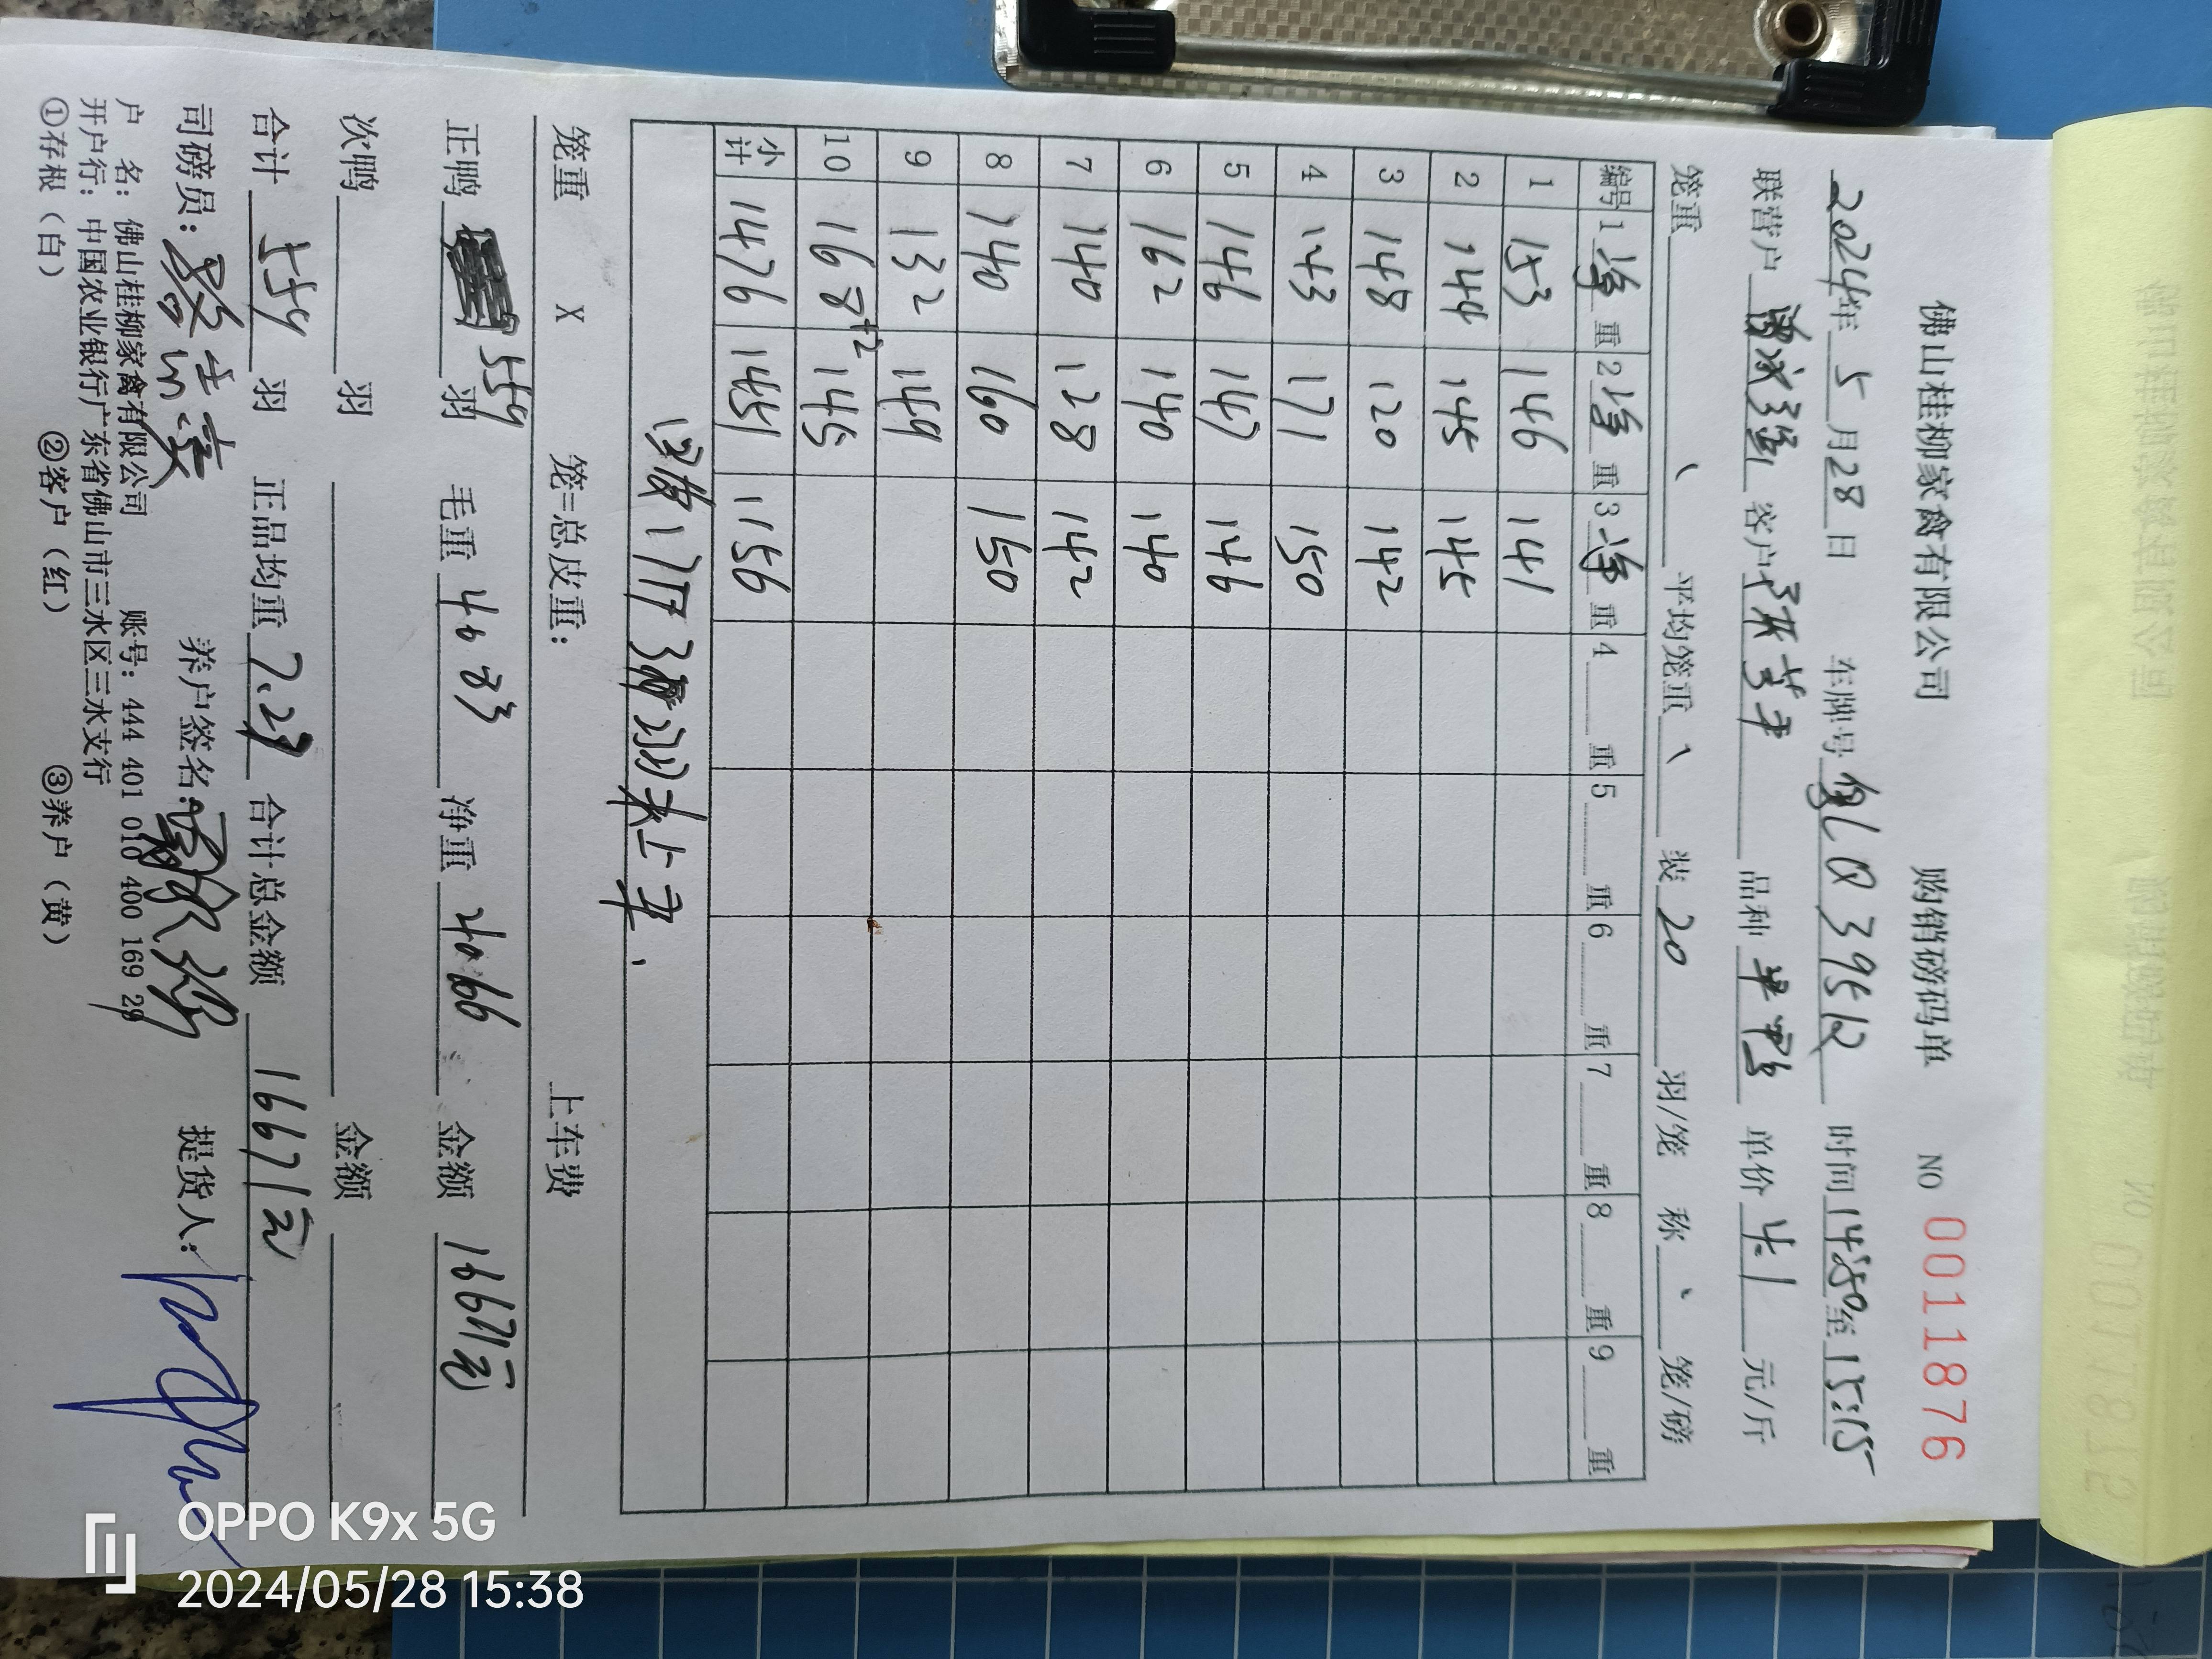 佛山桂柳家禽有限公司 购销磅码单 NO 0011876
2024年 5 月 28 日 车牌号 03951 时间 14:50 至 15:15
联营户 客户 品种 半鸭 单价 4.1 元/斤
笼重 、 平均笼重 、 装 20 羽/笼 称 、 笼/磅
编号 1 净 重 2 净 重 3 净 重 4 重 5 重 6 重 7 重 8 重 9 重
1 153 146 141
2 144 145 145
3 148 120 142
4 143 171 150
5 146 147 146
6 162 140 140
7 140 128 142
8 140 160 150
9 132 149
10 168 +2 145
小计 1476 1451 1156
17斤 未上车.
笼重 X 笼=总皮重: 上车费
正鸭 559 羽 毛重 4083 净重 4066 金额 16671元
次鸭 羽 金额
合计 559 羽 正品均重 7.27 合计总金额 16671元
司磅员: 养户签名: 提货人:
户 名: 佛山桂柳家禽有限公司 账号: 444 401 010 400 169 29
开户行: 中国农业银行广东省佛山市三水区三水支行
①存根（白） ②客户（红） ③养户（黄）
OPPO K9x 5G
2024/05/28 15:38